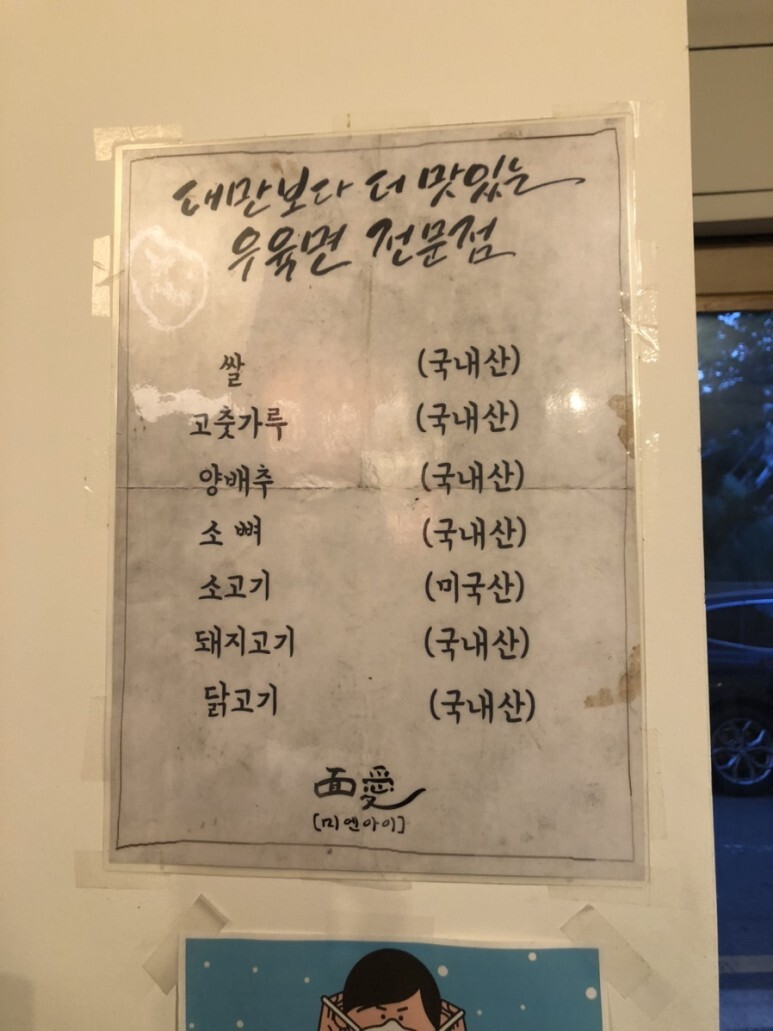 대만보다 더 맛있는
우육면 전문점
쌀 (국내산)
고춧가루 (국내산)
양배추 (국내산)
소 뼈 (국내산)
소고기 (미국산)
돼지고기 (국내산)
닭고기 (국내산)
面愛
[미엔아이]